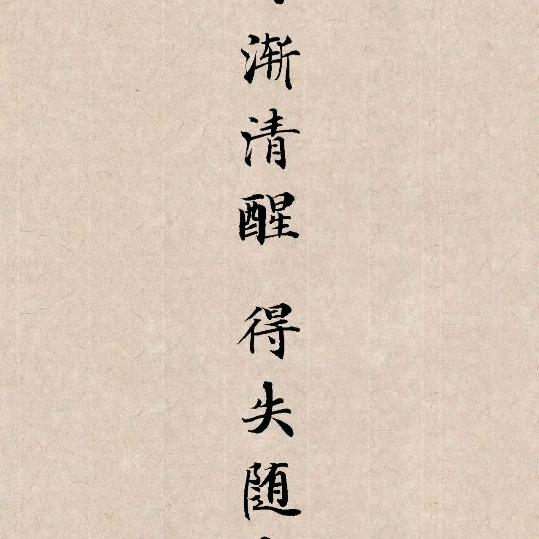 渐清醒 得失随